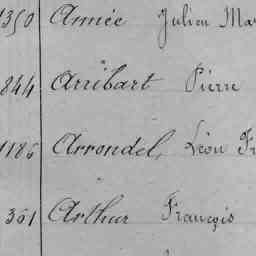 1350 Année Julien Ma
844 Arribart Pierre
1186 Arrondel, Léon Fr
361 Arthur François